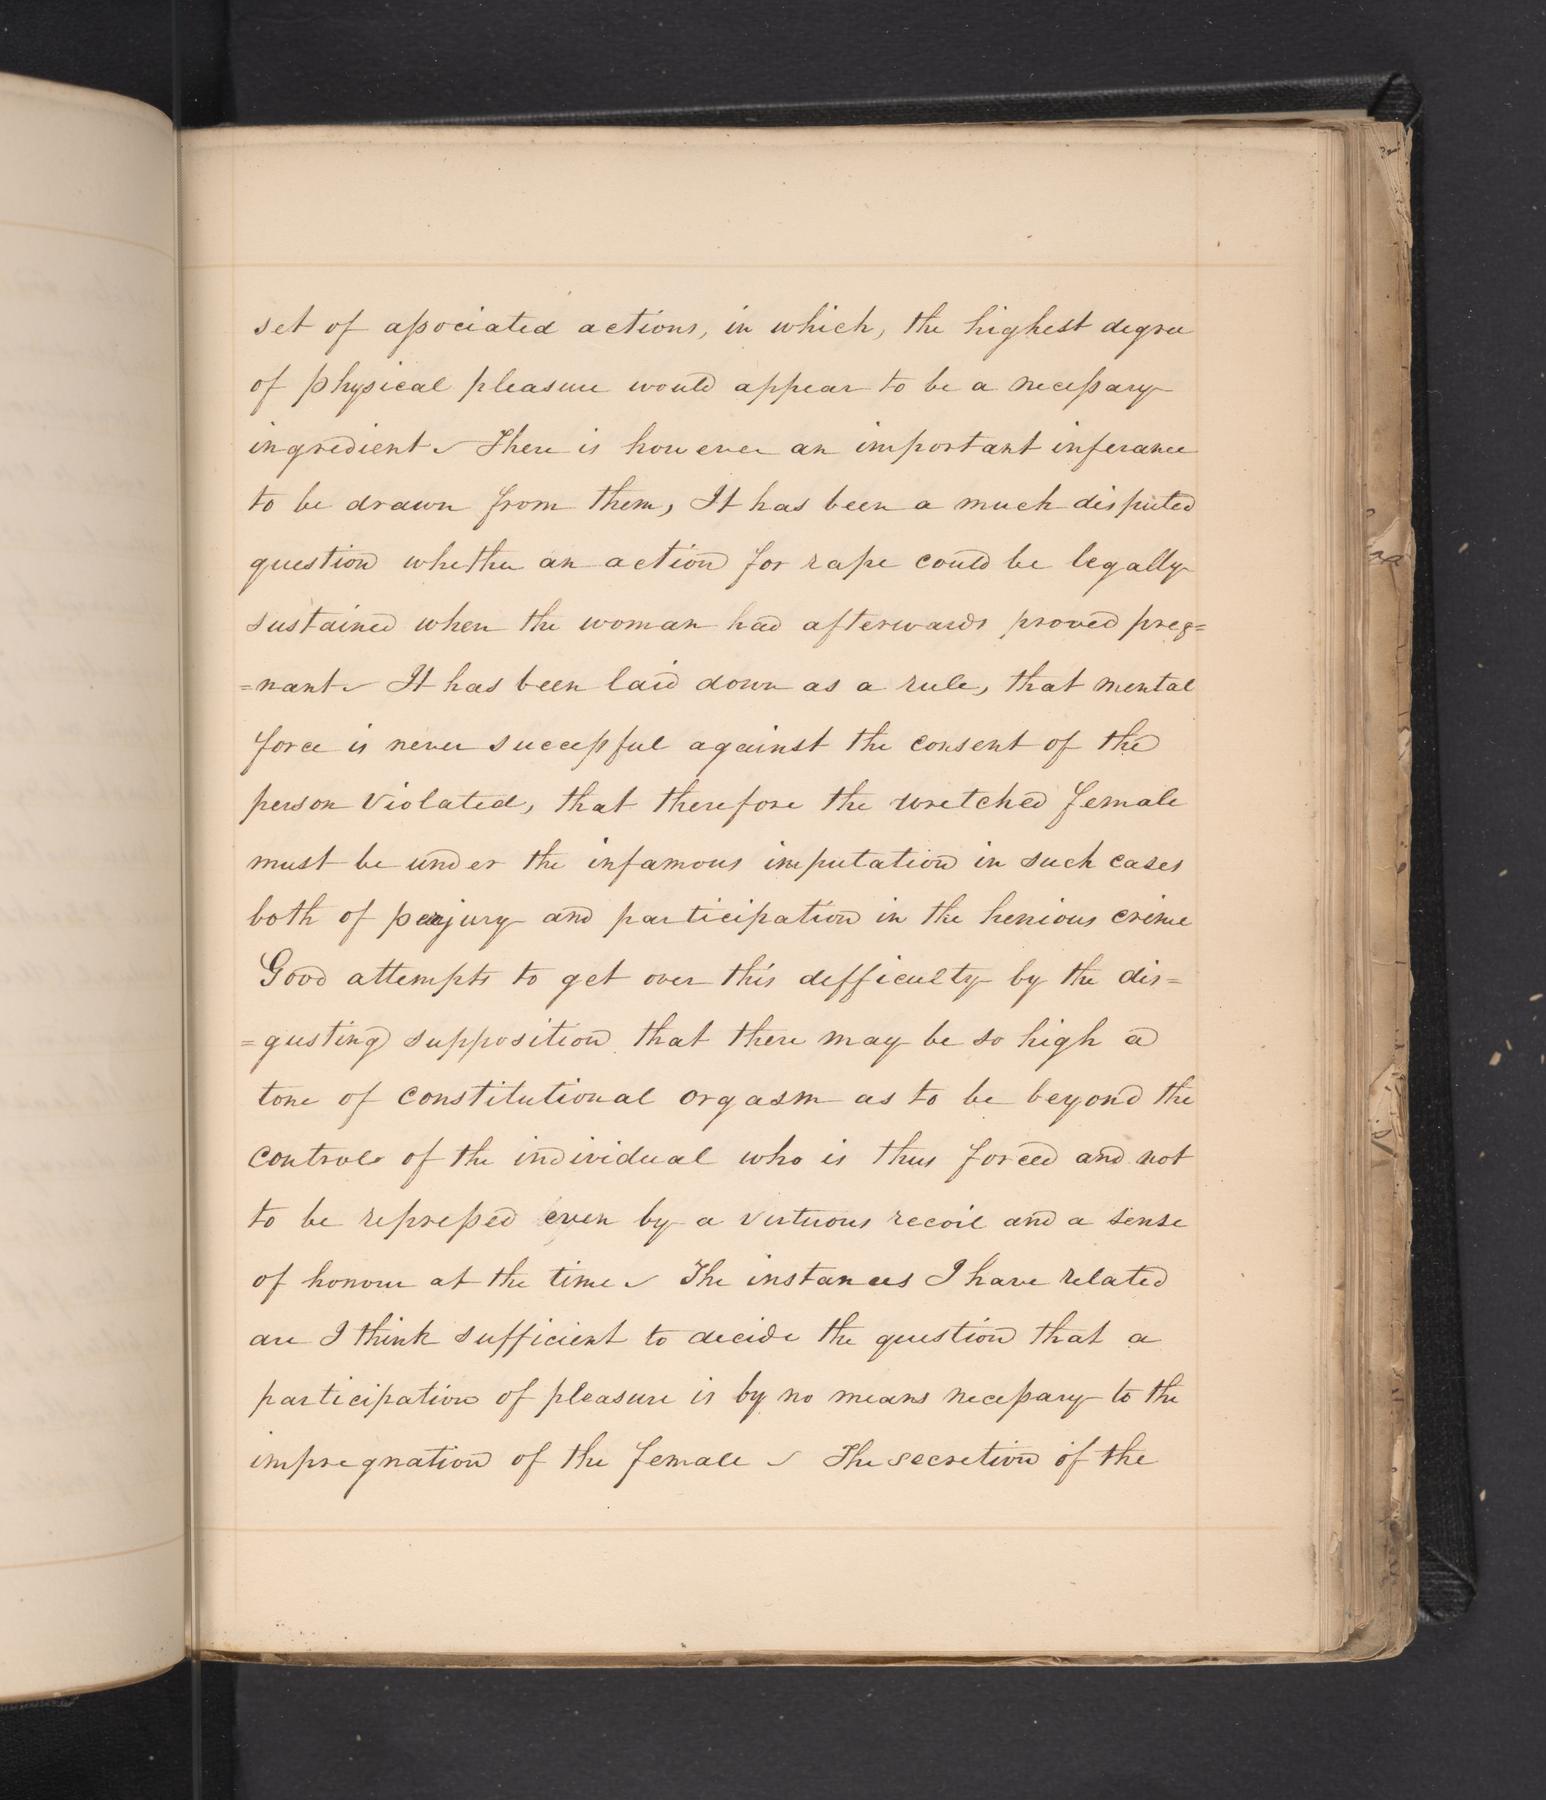 set of associated actions, in which, the highest degree
of physical pleasure would appear to be a necessary
ingredient. There is however an important inferance
to be drawn from them, It has been a much disputed
question whether an action for rape could be legally
sustained when the woman had afterwards proved preg=
=nant. It has been laid down as a rule, that mental
force is never successful against the consent of the
person violated, that therefore the wretched female
must be under the infamous imputation in such cases
both of perjury and participation in the henious crime
Good attempts to get over this difficulty by the dis=
=gusting supposition that there may be so high a
tone of constitutional orgasm as to be beyond the
control of the individual who is thus forced and not
to be repressed even by a virtuous recoil and a sense
of honour at the time. The instances I have related
are I think sufficient to decide the question that a
participation of pleasure is by no means necessary to the
impregnation of the female. The secretion of the